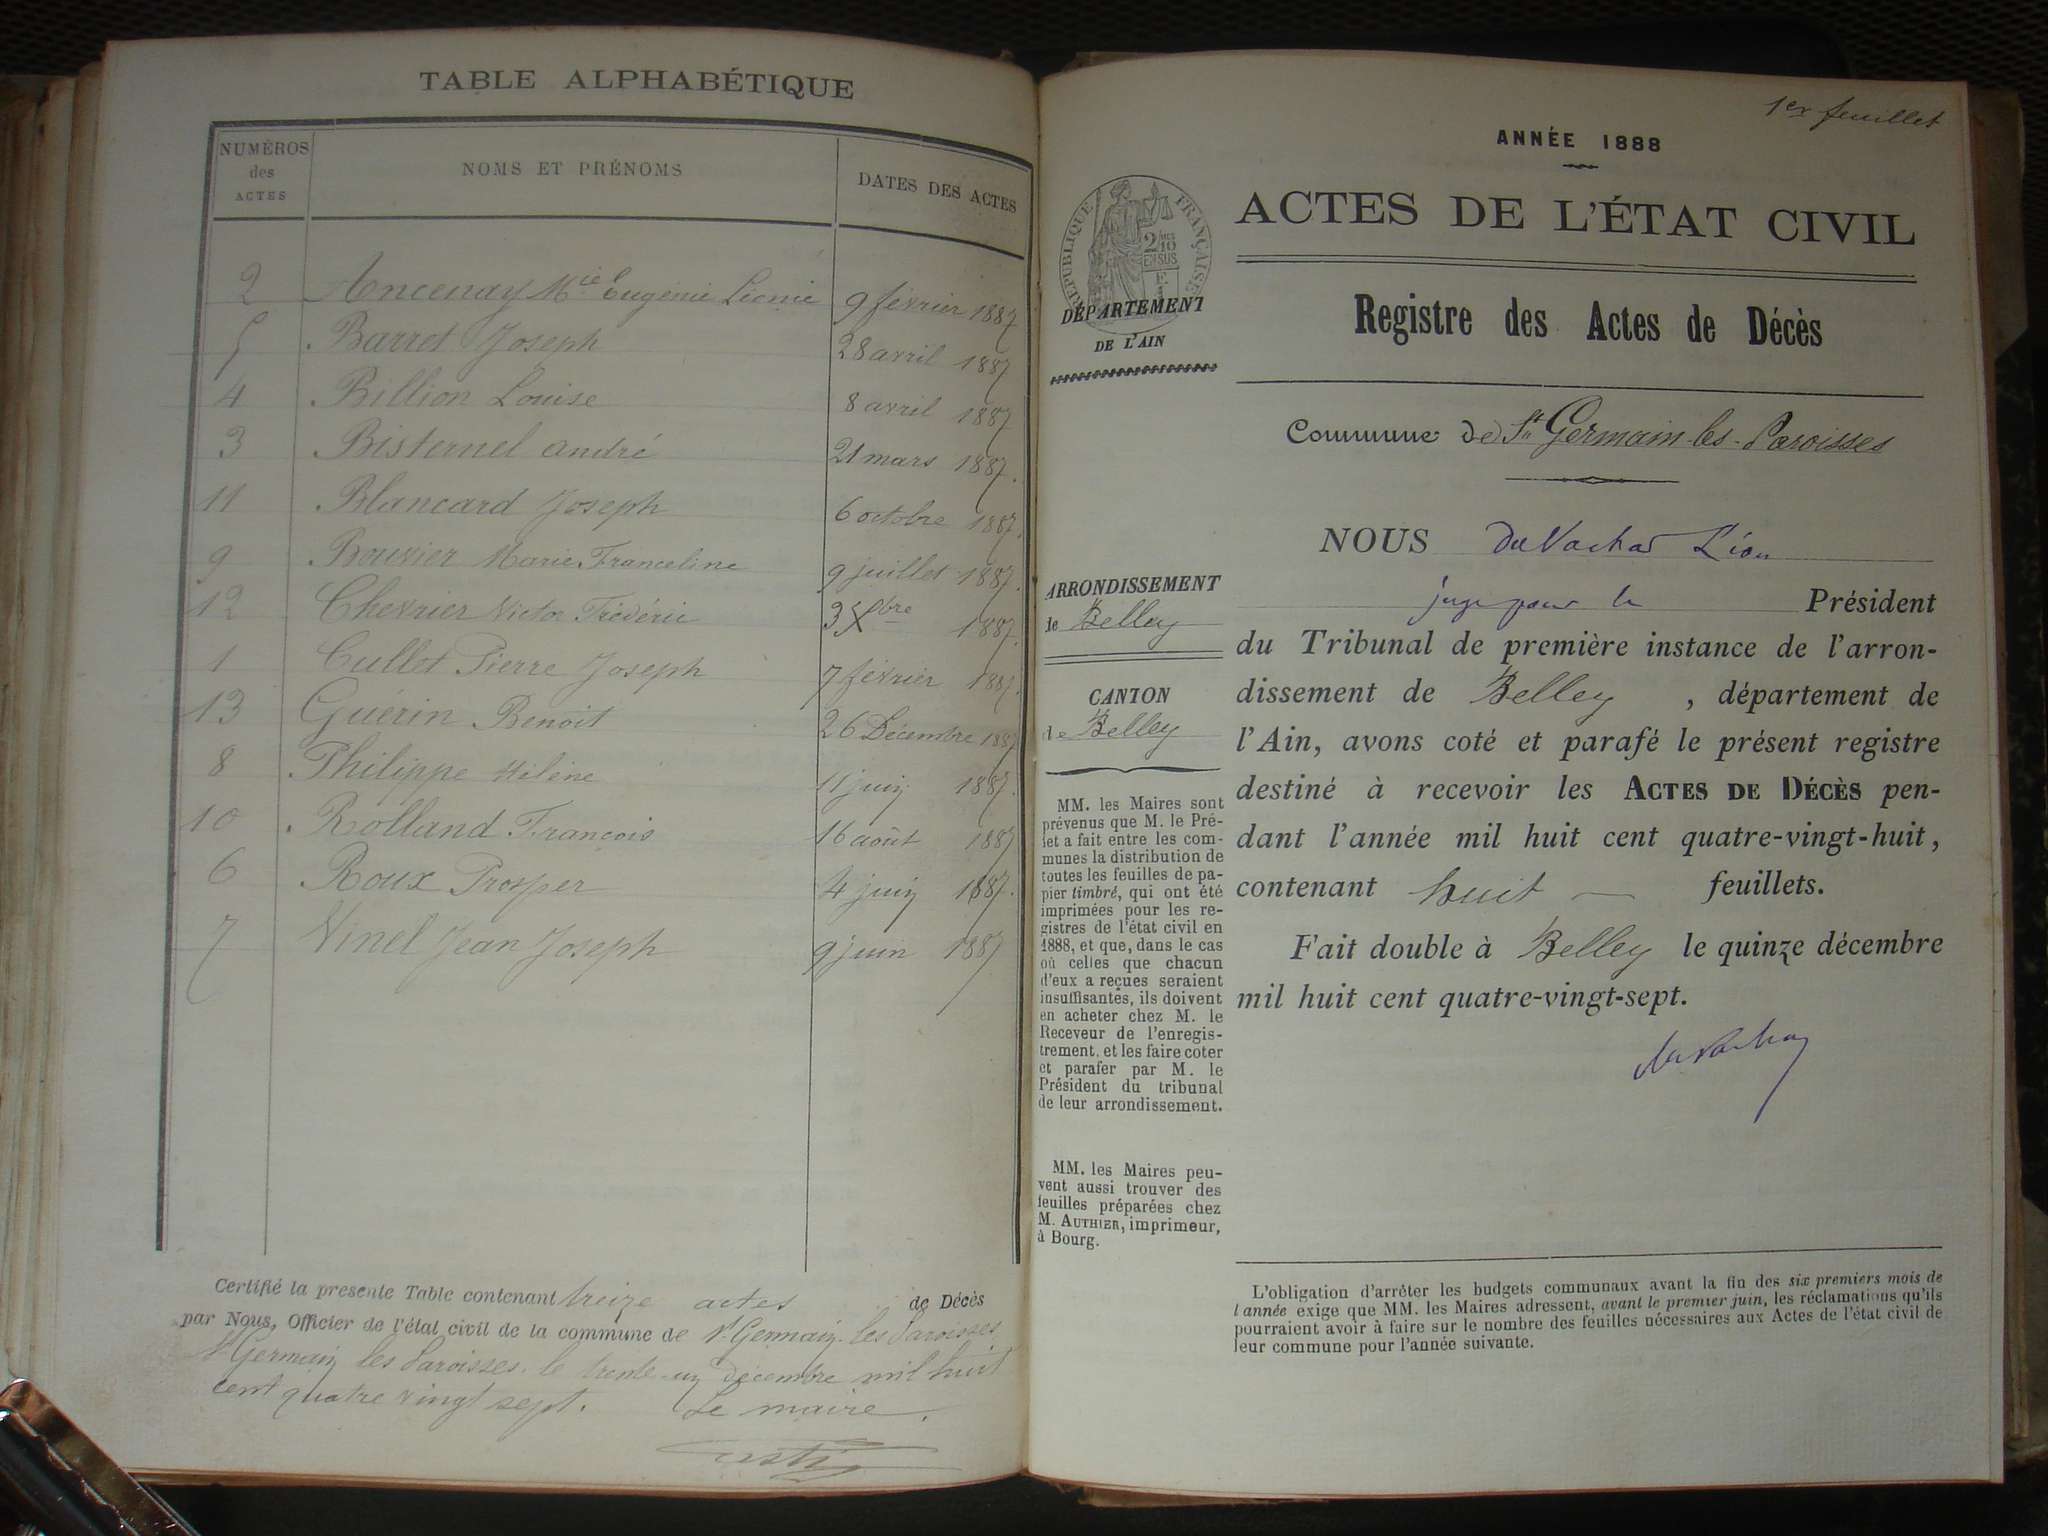 TABLE ALPHABÉTIQUE
NUMÉROS des ACTES NOMS ET PRÉNOMS DATES DES ACTES
2 Ancenay Mie Eugénie Léonie 9 février 1887
5 Barret Joseph 28 avril 1887
4 Billion Louise 8 avril 1887
3 Bisternel André 21 mars 1887.
11 Blancard Joseph 6 octobre 1887.
9 Bouvier Marie Franceline 9 juillet 1887.
12 Chevrier Victor Frédéric 3 Xbre 1887
1 Cullet Pierre Joseph 7 février 1887.
13 Guérin Benoit 26 Décembre 1887
8 Philippe Hélène 11 juin 1887.
10 Rolland François 16 août 1887
6 Roux Prosper 4 juin 1887.
7 Vinel Jean Joseph 9 juin 1887
Certifié la présente Table contenant treize actes de Décès
par Nous, Officier de l'état civil de la commune de St Germain les Paroisses
St Germain les Paroisses. le trente-un décembre mil huit
cent quatre vingt sept. Le maire.
1er feuillet
ANNÉE 1888
ACTES DE L'ÉTAT CIVIL
RÉPUBLIQUE FRANÇAISE
DÉPARTEMENT
DE L'AIN
Registre des Actes de Décès
Commune de St Germain-les-Paroisses
ARRONDISSEMENT
de Belley
CANTON
de Belley
MM. les Maires sont
prévenus que M. le Pré-
fet a fait entre les com-
munes la distribution de
toutes les feuilles de pa-
pier timbré, qui ont été
imprimées pour les re-
gistres de l'état civil en
1888, et que, dans le cas
où celles que chacun
d'eux a reçues seraient
insuffisantes, ils doivent
en acheter chez M. le
Receveur de l'enregis-
trement, et les faire coter
et parafer par M. le
Président du tribunal
de leur arrondissement.
MM. les Maires peu-
vent aussi trouver des
feuilles préparées chez
M. AUTHIER, imprimeur,
à Bourg.
NOUS Léon
juge pour le Président
du Tribunal de première instance de l'arron-
dissement de Belley, département de
l'Ain, avons coté et parafé le présent registre
destiné à recevoir les ACTES DE DÉCÈS pen-
dant l'année mil huit cent quatre-vingt-huit,
contenant huit — feuillets.
Fait double à Belley le quinze décembre
mil huit cent quatre-vingt-sept.
L'obligation d'arrêter les budgets communaux avant la fin des six premiers mois de
l'année exige que MM. les Maires adressent, avant le premier juin, les réclamations qu'ils
pourraient avoir à faire sur le nombre des feuilles nécessaires aux Actes de l'état civil de
leur commune pour l'année suivante.